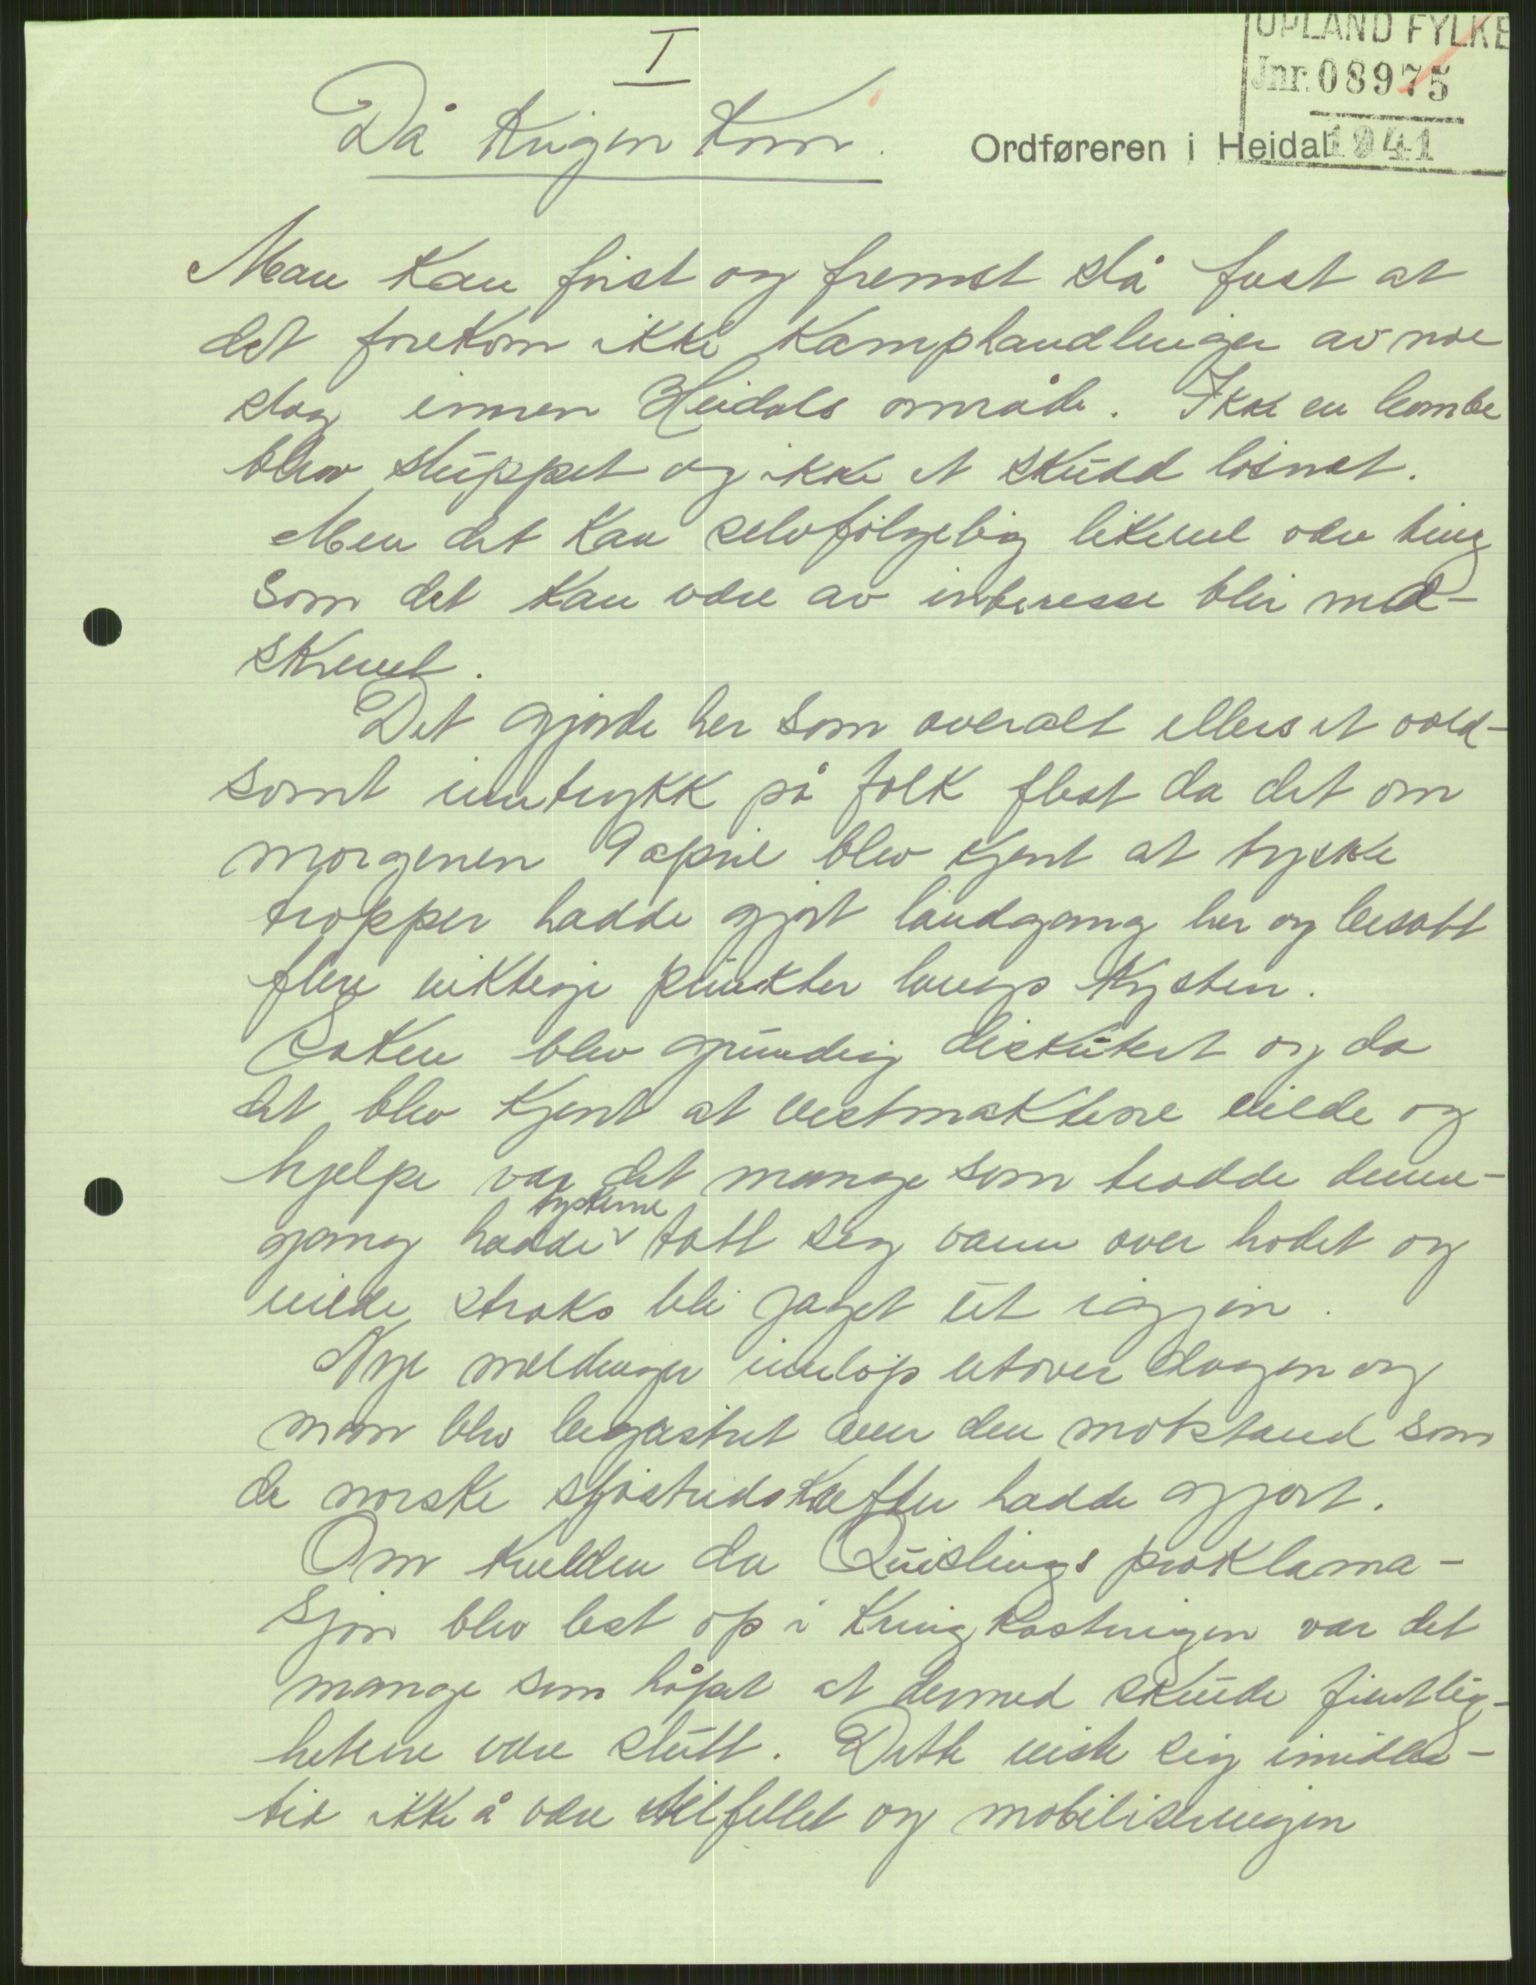 I
OPLAND FYLKE
Jnr. 08975
1941
Då Krigen Kom.
Ordføreren i Heidal
Man kan först og fremst slå fast at
det forekom ikke kamphandlinger av noe
slag innen Heidals område. Ikke en bombe
blev sluppet og ikke et skudd lösnet.
Men det kan selvfölgelig likevel være ting
som det kan være av interesse blir ned-
skrevet.
Det gjorde her som overalt ellers et vold-
somt inntrykk på folk flest da det om
morgenen 9 april blev kjent at tyske
tropper hadde gjort landgang her og besatt
flere viktige punkter langs kysten.
Saken blev grundig diskutert og da
det blev kjent at vestmaktene vilde og
hjelpe var det mange som trodde denne-
gang hadde tyskerne tatt seg vann over hodet og
vilde straks bli jaget ut igjen.
Nye meldinger innlöp utover dagen og
man blev begeistret over den motstand som
de norske sjöstridskrefter hadde gjort.
Om kvelden da Quislings proklama-
sjon blev lest op i Kringkastningen var det
mange som håpet at dermed skulde fientlig-
hetene være slutt. Dette viste sig imidler-
tid ikke å være tilfellet og mobiliseringen